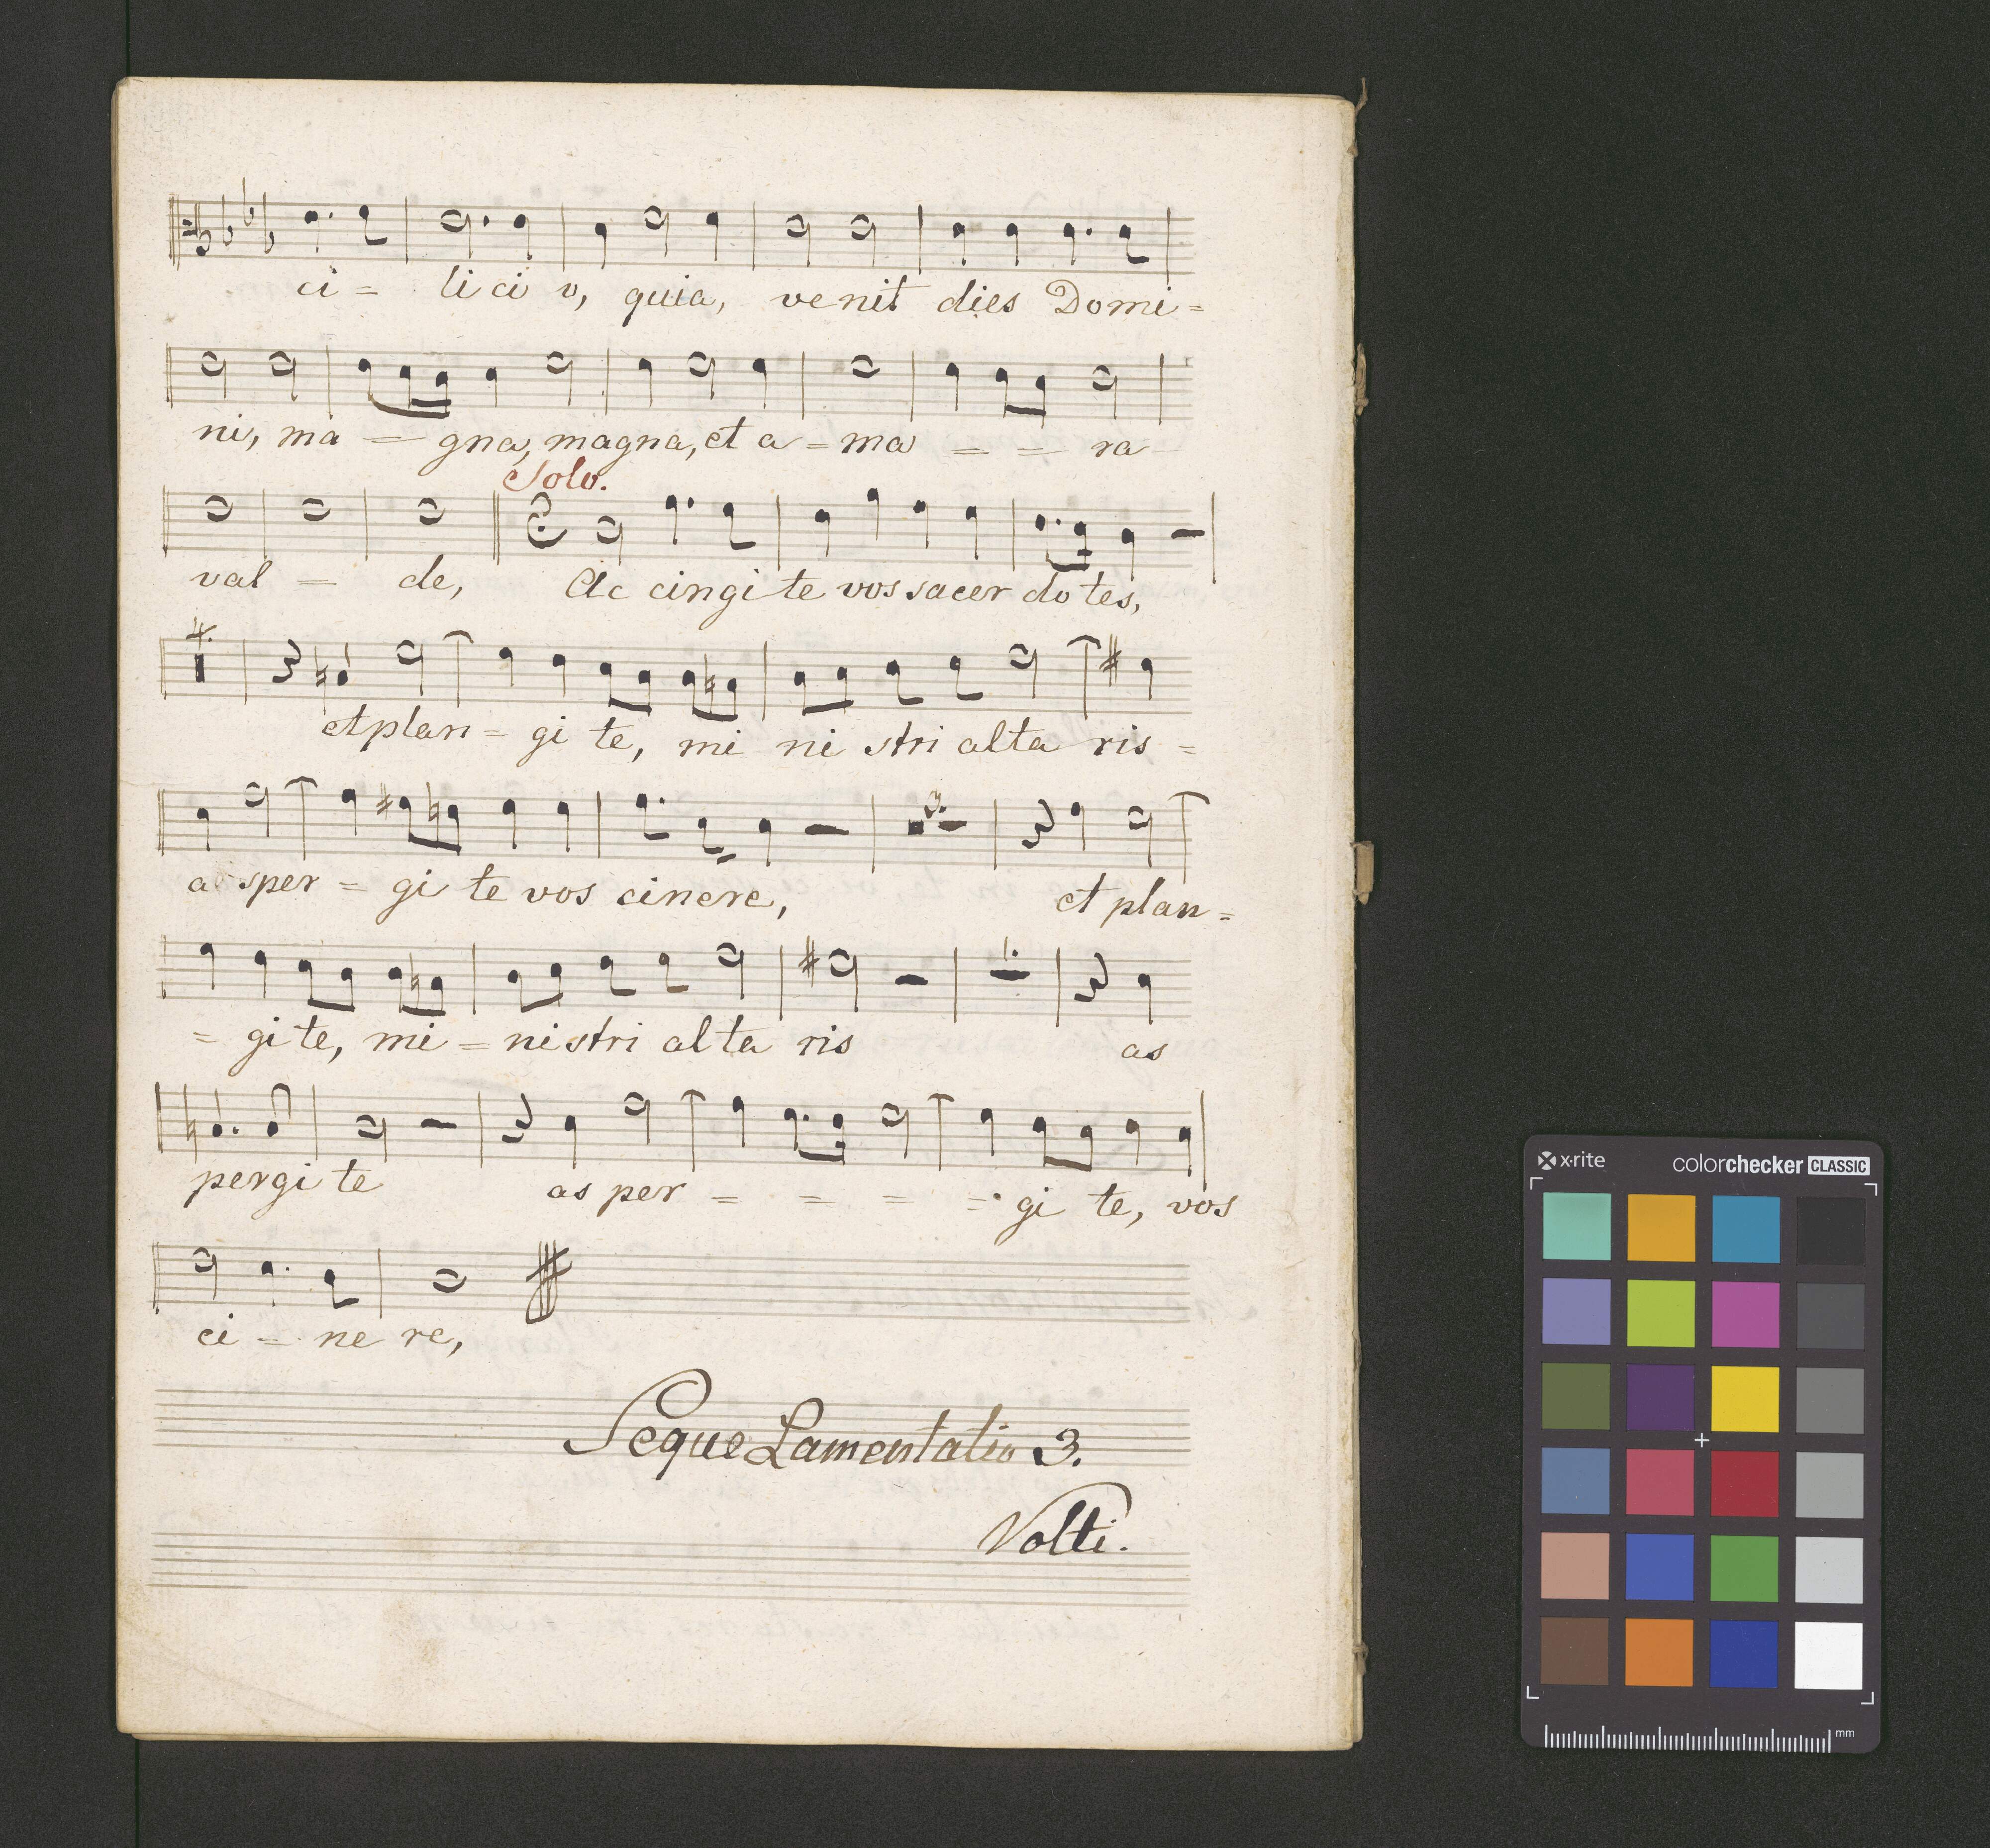 ci = li ci o, quia, venit dies Domi =
ni, ma = gna, magna, et a = ma = = ra
Solo.
val = de, Ac cingi te vos sacer do tes,
4.
et plan = gi te, mi ni stri alta ris =
2.
a sper = gi te vos cinere, et plan =
1.
= gi te, mi = ni stri al ta ris as
pergi te as per = = = = gi te, vos
ci = ne re,
Seque Lamentatio 3.
Volti.
x-rite colorchecker CLASSIC
mm